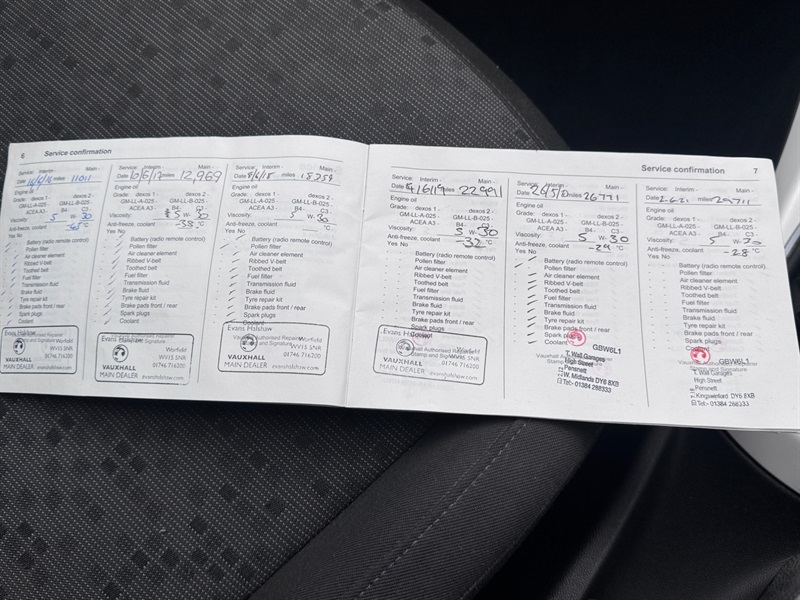 6 Service confirmation
Service: Interim - Main -
Date miles 11011
Engine oil
Grade: dexos 1 - dexos 2 -
GM-LL-A-025 - GM-LL-B-025 -
ACEA A3 - B4 - C3 -
Viscosity: 5 W- 30
Anti-freeze, coolant °C
Yes No
Battery (radio remote control)
Pollen filter
Air cleaner element
Ribbed V-belt
Toothed belt
Fuel filter
Transmission fluid
Brake fluid
Tyre repair kit
Brake pads front / rear
Spark plugs
Coolant
Evans Halshaw
Worfield
WV15 5NR
01746 716200
VAUXHALL
MAIN DEALER evanshalshaw.com
Service: Interim - Main -
Date 10/6/17 miles 12,969
Engine oil
Grade: dexos 1 - dexos 2 -
GM-LL-A-025 - GM-LL-B-025 -
ACEA A3 - B4 - C3 -
Viscosity: 5 W- 30
Anti-freeze, coolant -38 °C
Yes No
Battery (radio remote control)
Pollen filter
Air cleaner element
Ribbed V-belt
Toothed belt
Fuel filter
Transmission fluid
Brake fluid
Tyre repair kit
Brake pads front / rear
Spark plugs
Coolant
Evans Halshaw
Worfield
WV15 5NR
01746 716200
VAUXHALL
MAIN DEALER evanshalshaw.com
Service: Interim - Main -
Date 8/6/18 miles
Engine oil
Grade: dexos 1 - dexos 2 -
GM-LL-A-025 - GM-LL-B-025 -
ACEA A3 - B4 - C3 -
Viscosity: 5 W- 30
Anti-freeze, coolant - °C
Yes No
Battery (radio remote control)
Pollen filter
Air cleaner element
Ribbed V-belt
Toothed belt
Fuel filter
Transmission fluid
Brake fluid
Tyre repair kit
Brake pads front / rear
Spark plugs
Coolant
Evans Halshaw
Vauxhall Authorised Repairer
Stamp and Signature
Worfield
WV15 5NR
01746 716200
VAUXHALL
MAIN DEALER evanshalshaw.com
Service confirmation 7
Service: Interim - Main -
Date 4/6/19 miles 22991
Engine oil
Grade: dexos 1 - dexos 2 -
GM-LL-A-025 - GM-LL-B-025 -
ACEA A3 - B4 - C3 -
Viscosity: 5 W- 30
Anti-freeze, coolant -32 °C
Yes No
Battery (radio remote control)
Pollen filter
Air cleaner element
Ribbed V-belt
Toothed belt
Fuel filter
Transmission fluid
Brake fluid
Tyre repair kit
Brake pads front / rear
Spark plugs
Coolant
Evans Halshaw
Vauxhall Authorised Repairer
Stamp and Signature
Worfield
WV15 5NR
01746 716200
VAUXHALL
MAIN DEALER evanshalshaw.com
Service: Interim - Main -
Date miles 26771
Engine oil
Grade: dexos 1 - dexos 2 -
GM-LL-A-025 - GM-LL-B-025 -
ACEA A3 - B4 - C3 -
Viscosity: 5 W- 30
Anti-freeze, coolant °C
Yes No
Battery (radio remote control)
Pollen filter
Air cleaner element
Ribbed V-belt
Toothed belt
Fuel filter
Transmission fluid
Brake fluid
Tyre repair kit
Brake pads front / rear
Spark plugs
Coolant
GBW6L1
T. Wall Garages
High Street
Pensnett
W. Midlands DY6 8XB
Tel:- 01384 288333
Service: Interim - Main -
Date 2.6.21 miles 29711
Engine oil
Grade: dexos 1 - dexos 2 -
GM-LL-A-025 - GM-LL-B-025 -
ACEA A3 - B4 - C3 -
Viscosity: 5 W- 30
Anti-freeze, coolant -28 °C
Yes No
Battery (radio remote control)
Pollen filter
Air cleaner element
Ribbed V-belt
Toothed belt
Fuel filter
Transmission fluid
Brake fluid
Tyre repair kit
Brake pads front / rear
Spark plugs
Coolant
GBW6L1
T. Wall Garages
High Street
Pensnett
Kingswinford DY6 8XB
Tel:- 01384 288333